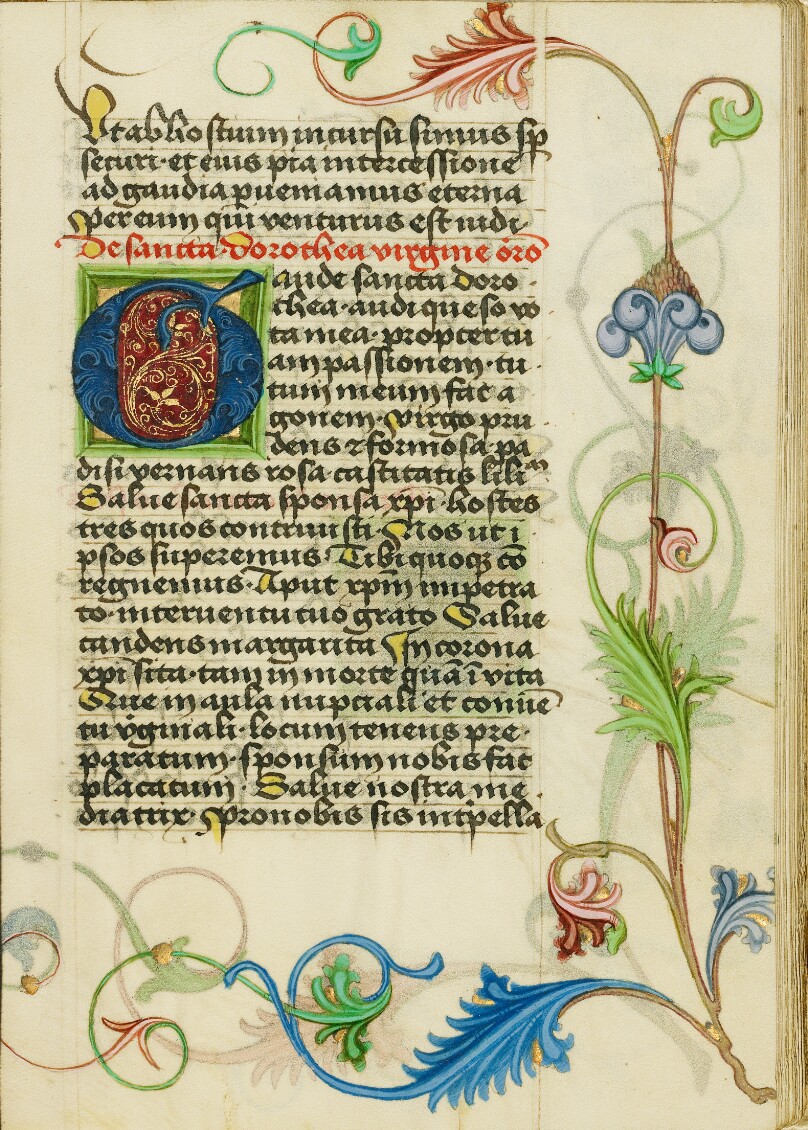 Ut ab hostium incursu simus sp
securi· et eius pia intercessione
ad gaudia puemamus eterna
per eum qui venturus est iudi·
De sancta dorothea virgine oro
Gaude sancta doro·
thea· audi queso vo
ta mea· propter tu
am passionem· tu·
tum meum fac a·
gonem· virgo pru
dens ⁊ formosa pa
disi vernans rosa castitatis liliᵐ
Salue sancta sponsa xpi· hostes
tres quos contriuisti· Nos ut i
psos superemus· Tibi quoqꝫ co
regnemus· Aput xpm impetra
to· interuentu tuo grato Salue
candens margarita In corona
xpi sita· tam in morte quā ī vita
Que in aula nupciali et conuē
tu vginali· locum tenens pre·
paratum· sponsum nobis fac
placatum· Salue nostra me
diatrix· pro nobis sis intpella